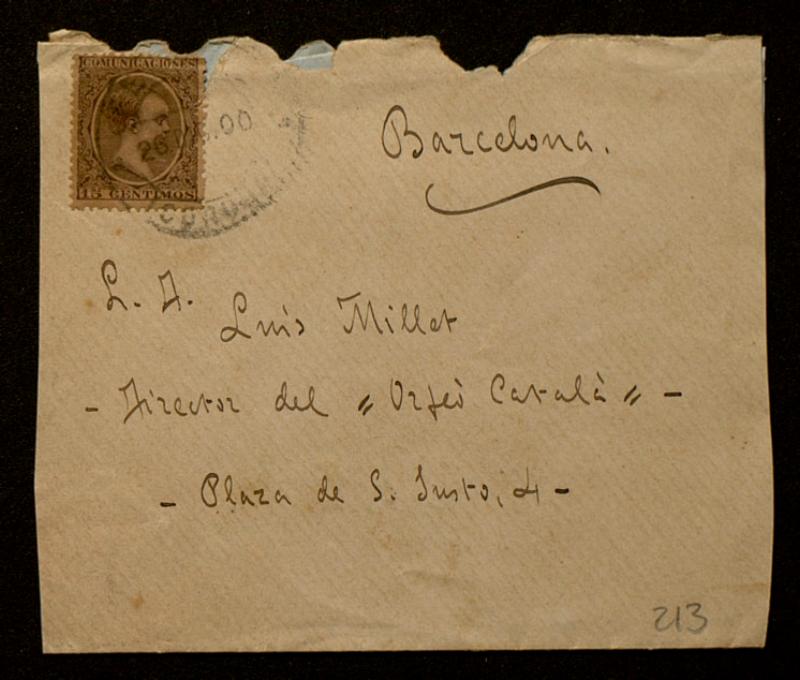 COMUNICACIONES
15 CENTIMOS
Barcelona.
S. D.
Luis Millet
- Director del "Orfeó Catalá" -
- Plaza de S. Justo, 4 -
213